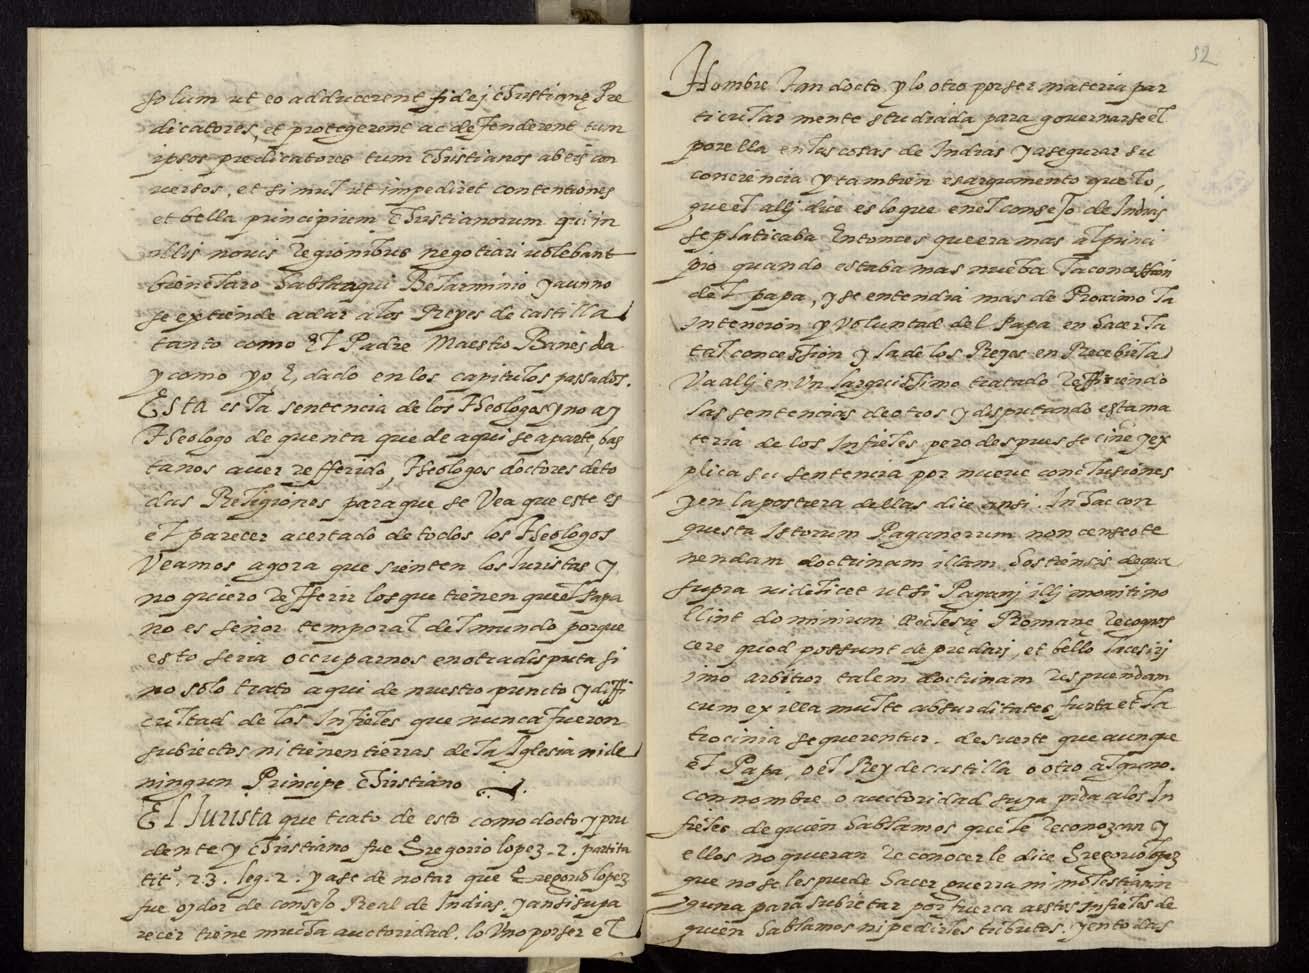 solum ut eo adducerent fidej christianę Pre
dicatores, et protegerent ac defenderent tum
ipsos predicatores tum christianos ab eis con
uersos, et simul ut impediret contentiones
et bella principum Christianorum qui in
illis nouis regionibus negotiari uolebant
bien claro habla aqui Belarminio y aun no
se extiende a dar a los Reyes de castilla
tanto como El Padre Maestro Banes da
y como yo E, dado en los capitulos passados.
Esta es la sentencia de los theologos y no ay
theologo de quenta que de aqui se aparte, bas
tanos auer refferido, theologos doctores de to
das Religiones para que se Vea que este es
el parecer acertado de todos los theologos
Veamos agora que sienten los Iuristas y
no quiero refferir los que tienen que el Papa
no es señor temporal del mundo porque
esto seria occuparnos en otra disputa si
no solo trato aqui de nuestro puncto y diffi
cultad de los Infieles que nunca fueron
subiectos ni tienen tierras de la Iglesia ni de
ningun Principe christiano
El Iurista que trato de esto como docto y pru
dente y christiano fue Gregorio lopez. 2. partita
titº. 23. leg. 2. y ase de notar que Gregorio lopez
fue oydor de consejo Real de Indias, y ansi su pa
recer tiene mucha auctoridad. lo Uno por ser el
52
Hombre tan docto, y lo otro por ser materia par
ticular mente studiada para governarse el
por ella en las cosas de Indias y asegurar su
conciencia y tambien es argumento que lo,
que el allj dice es lo que en el consejo de Indias
se platicaba Entonces que era mas al princi
pio quando estaba mas nueba la concession
del papa, y se entendia mas de Proximo la
intencion y voluntad del Papa en hacer la
tal concession y la de los Reyes en Recebirla
Va allj en Un larguissimo tratado refiriendo
las sentencias de otros y disputando esta ma
teria de los Infieles pero despues se ciñe y ex
plica su sentencia por nueve conclusiones
y en la postrera dellas dice ansi. In hac con
questa Istorum Paganorum non censeo te
nendam doctrinam illam, hostiensis de qua
supra uidelicet ut si Paganj illj moniti no
llint dominium Ecclesię Romanę recognos
cere quod possunt depredarj, et bello lacesirj
imo arbitror talem doctrinam respuendam
cum ex illa multe absurditates, furta et la
trocinia sequerentur. de suerte que aunque
el Papa, o el Rey de castilla o otro alguno.
con nombre o auctoridad suya pida a los In
fieles de quien hablamos que le reconozcan y
ellos no quieran reconocerle dice Gregorio lopez
que no se les puede hacer guerra ni molestia nin
guna para subietar por fuerca a estos Infieles de
quien hablamos ni pedirles tributos. y en todas